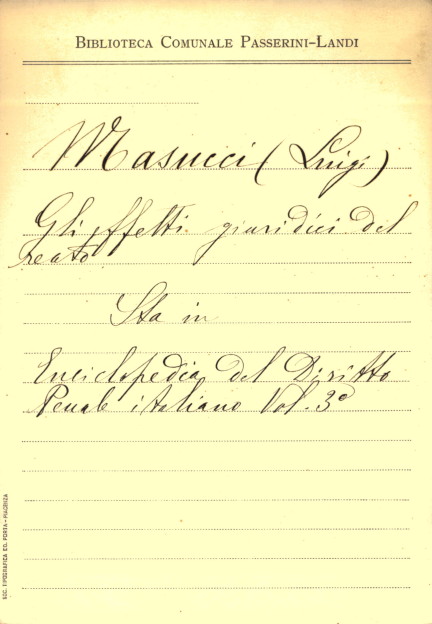 BIBLIOTECA COMUNALE PASSERINI-LANDI
Masucci (Luigi)
Gli effetti giuridici del
reato
Sta in
Enciclopedia del Diritto
Penale italiano Vol. 3º
SOC. TIPOGRAFICA ED. PORTA - PIACENZA